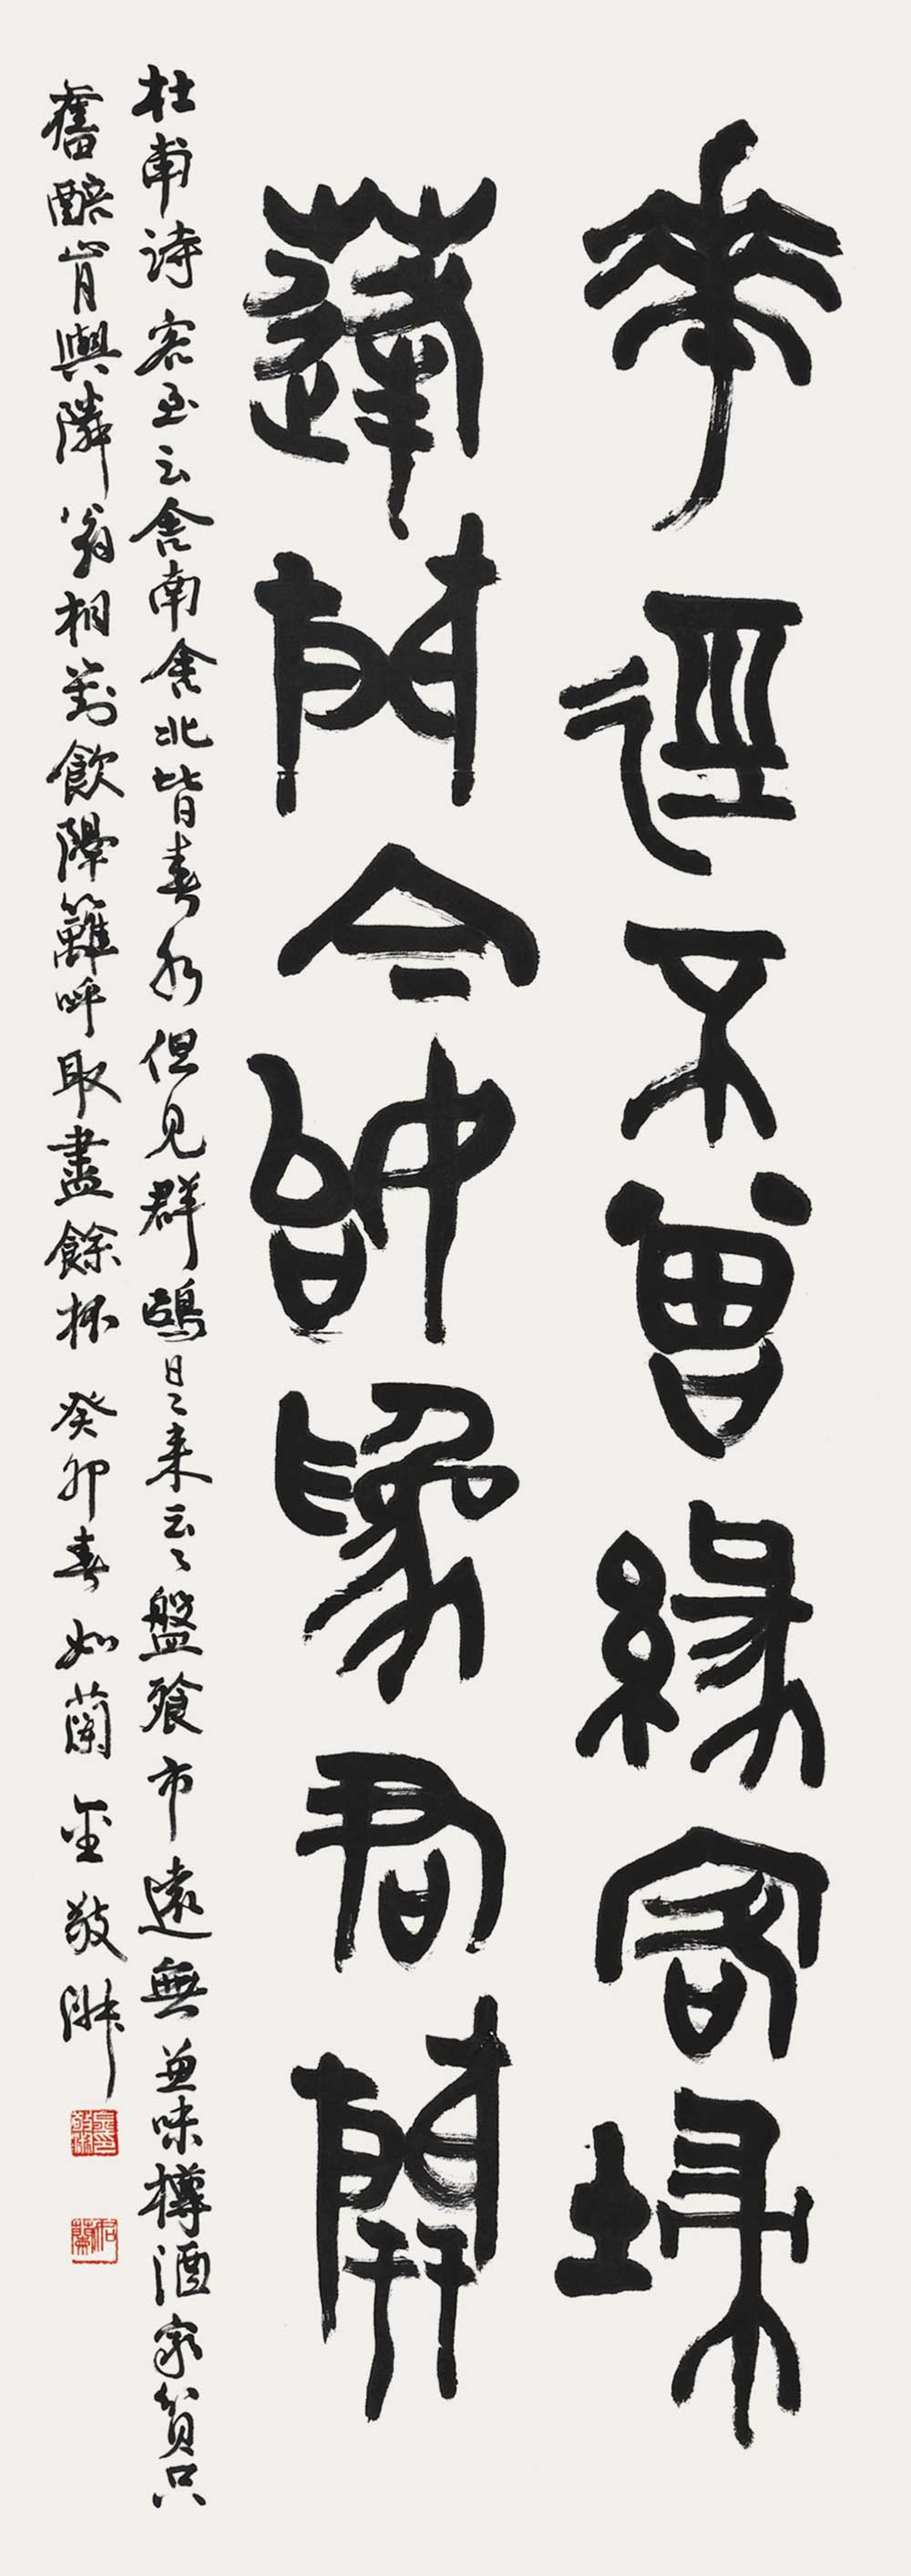 華徑不曾緣客埽
蓬門今始為君開
杜甫詩客至云舍南舍北皆春水但見群鷗日〻來云〻盤飧市遠無兼味樽酒家貧只
舊醅肯與隣翁相對飲隔籬呼取盡餘杯 癸卯春 如蘭 金敬